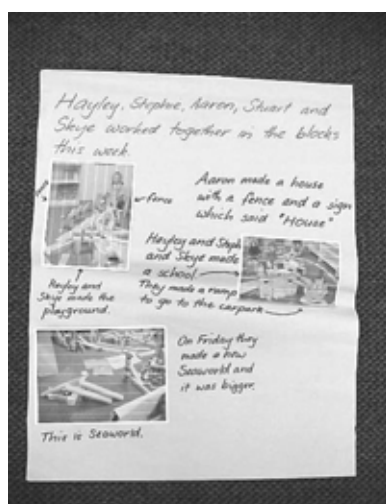 Hayley, Stephie, Aaron, Stuart and
Skye worked together in the blocks
this week.
fence
Aaron made a house
with a fence and a sign
which said "HOUSE"
Hayley and Steph
and Skye made
a school
They made a ramp
to go to the carpark
Hayley and
Skye made the
playground.
On Friday they
made a new
Seaworld and
it was bigger.
This is Seaworld.